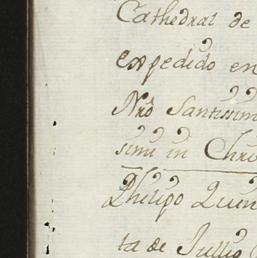 Cathedral de
expedido en
Nrõ Santissim
simi in Chris
Phelipo Quin
ta de Jullio